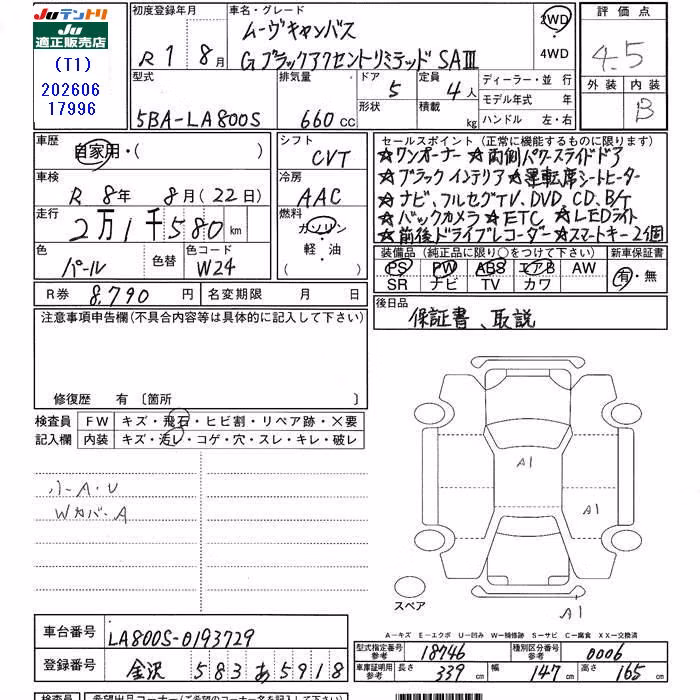 JUテントリ
JU
適正販売店
(T1)
202606
17996
初度登録年月 車名・グレード
R 1 8月
ムーヴキャンバス
Gブラックアクセントリミテッド SAⅢ
2WD・4WD
評価点
4.5
外装 内装
B
型式 排気量 ドア 形状 定員 積載
5BA-LA800S 660cc 5 4人 kg
ディーラー・並 行
モデル年式 年
ハンドル 左・右
車歴 自家用・( )
シフト CVT
車検 R 8年 8月(22日)
冷房 AAC
走行 2万1千580km
燃料 ガソリン・軽・油( )
色 パール 色替 色コード W24
R券 8,790円 名変期限 月 日
セールスポイント (正常に機能するものに限ります)
★ワンオーナー ★両側パワースライドドア
★ブラックインテリア ★運転席シートヒーター
★ナビ、フルセグTV、DVD、CD、B/T
★バックカメラ ★ETC ★LEDライト
★前後ドライブレコーダー ★スマートキー2個
装備品 (純正品に限り○をつけて下さい) 新車保証書
PS PW ABS エアB AW 有・無
SR ナビ TV カワ
後日品
保証書、取説
注意事項申告欄(不具合内容等は具体的に記入して下さい)
修復歴 有 〔箇所 〕
検査員記入欄
FW キズ・飛石・ヒビ割・リペア跡・×要
内装 キズ・汚レ・コゲ・穴・スレ・キレ・破レ
小-A・U
Wカバー-A
A1
A1
スペア
A1
A-キズ E-エクボ U-凹み W-補修跡 S-サビ C-腐食 XX-交換済
車台番号 LA800S-0193729
登録番号 金沢 583 あ 5918
型式指定番号 参考 18746 種別区分番号 参考 0006
車庫証明用 参考 長さ 339cm 幅 147cm 高さ 165cm
検査員 希望出品コーナー(ご希望のコーナー名を記入して下さい)